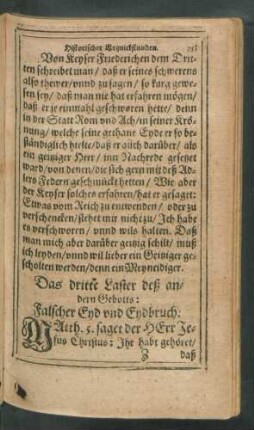 Historischer Erquickstunden.
Von Keyser Friederichen dem Drit-
ten schreibet man / daß er seines schwerens
also thewer / vnnd zu sagen / so karg gewe-
sen sey / daß man nie hat erfahren mögen /
daß er je einmahl geschworen hette / denn
in der Statt Rom vnd Ach / in seiner Krö-
nung / welche seine gethane Eyde er so be-
ständiglich hielte / daß er auch darüber / als
ein geitziger Herr / inn Nachrede gesetzt
ward / von denen / die sich gern mit deß Ad-
lers Federn geschmückt hetten / Wie aber
der Keyser solches erfahren / hat er gesaget:
Etwas vom Reich zu entwenden / oder zu
verschencken / stehet mir nicht zu / Ich habe
es verschworen / vnnd wils halten. Daß
man mich aber darüber geitzig schilt / muß
ich leyden / vnnd wil lieber ein Geitziger ge-
scholten werden / denn ein Meyneidiger.
Das dritte Laster deß an-
dern Gebotts:
Falscher Eyd vnd Eydbruch.
MAtth. 5. saget der HErr Je-
sus Christus: Ihr habt gehöret /
Z daß